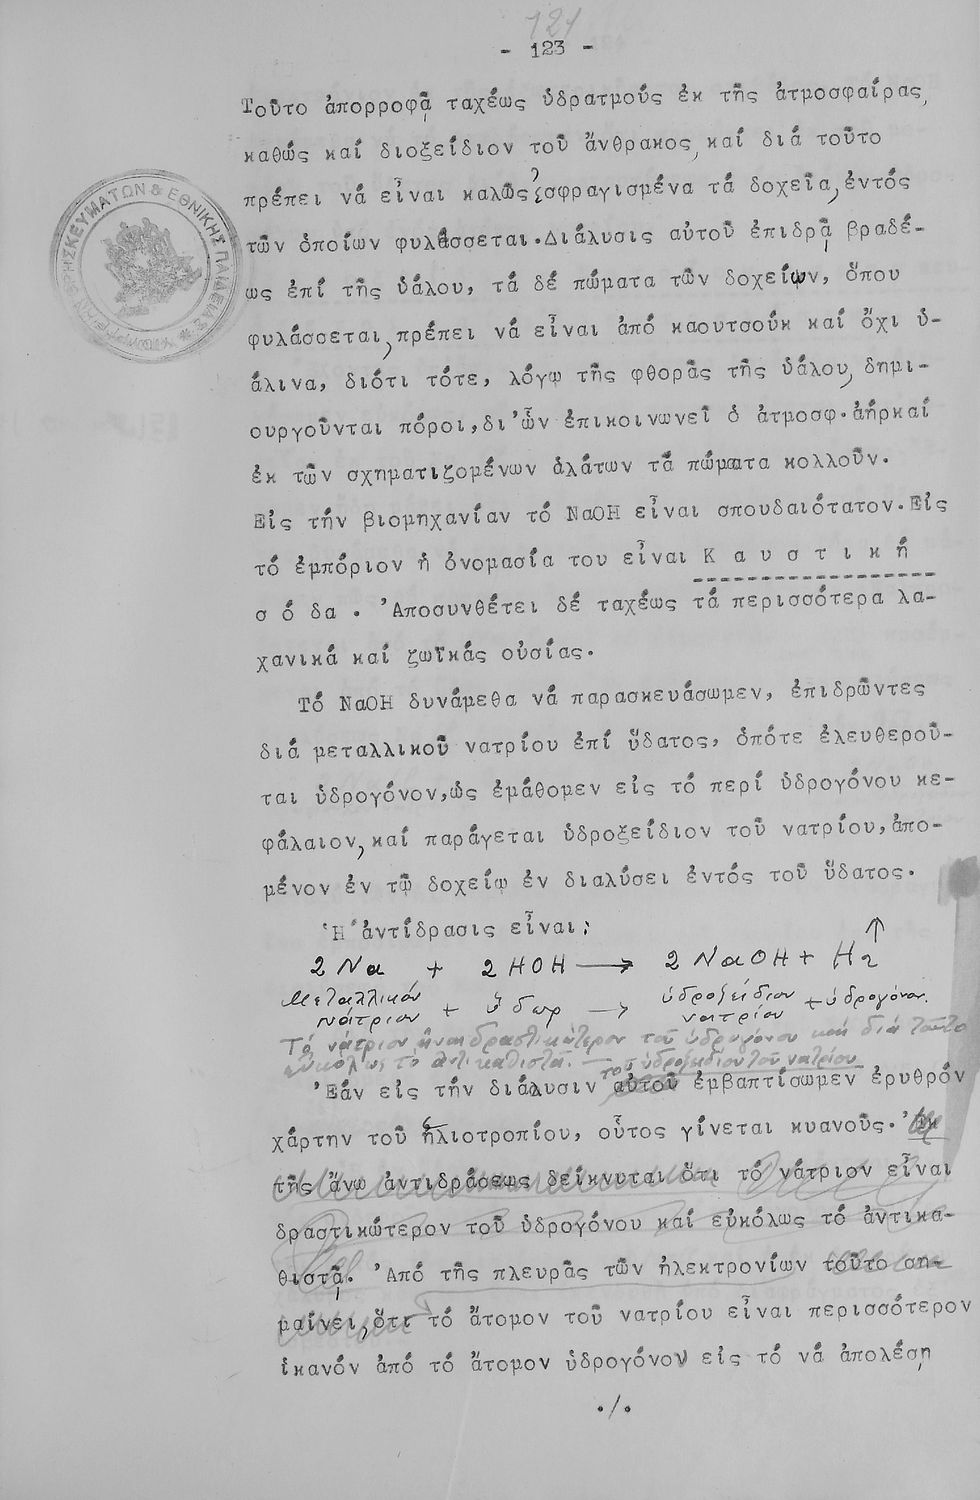 121
- 123 -
Τοῦτο ἀπορροφᾷ ταχέως ὑδρατμούς ἐκ τῆς ἀτμοσφαίρας,
καθώς καί διοξείδιον τοῦ ἄνθρακος, καί διά τοῦτο
πρέπει νά εἶναι καλῶς ἐσφραγισμένα τά δοχεῖα, ἐντός
τῶν ὁποίων φυλάσσεται. Διάλυσις αὐτοῦ ἐπιδρᾷ βραδέ-
ως ἐπί τῆς ὑάλου, τά δέ πώματα τῶν δοχείων, ὅπου
φυλάσσεται, πρέπει νά εἶναι ἀπό καουτσούκ καί ὄχι ὑ-
άλινα, διότι τότε, λόγῳ τῆς φθορᾶς τῆς ὑάλου, δημι-
ουργοῦνται πόροι, δι'ὧν ἐπικοινωνεῖ ὁ ἀτμοσφ. ἀήρκαί
ἐκ τῶν σχηματιζομένων ἁλάτων τά πώματα κολλοῦν.
Εἰς τήν βιομηχανίαν τό NaOH εἶναι σπουδαιότατον. Εἰς
τό ἐμπόριον ἡ ὀνομασία του εἶναι Κ α υ σ τ ι κ ή
σ ό δα . Ἀποσυνθέτει δέ ταχέως τά περισσότερα λα-
χανικά καί ζωϊκάς οὐσίας.
Τό NaOH δυνάμεθα νά παρασκευάσωμεν, ἐπιδρῶντες
διά μεταλλικοῦ νατρίου ἐπί ὕδατος, ὁπότε ἐλευθεροῦ-
ται ὑδρογόνον, ὡς ἐμάθομεν εἰς τό περί ὑδρογόνου κε-
φάλαιον, καί παράγεται ὑδροξείδιον τοῦ νατρίου, ἀπο-
μένον ἐν τῷ δοχείῳ ἐν διαλύσει ἐντός τοῦ ὕδατος.
Ἡ ἀντίδρασις εἶναι:
2 Na + 2 HOH → 2 NaOH + H₂ ↑
Μεταλλικόν νάτριον + ὕδωρ → ὑδροξείδιον νατρίου + ὑδρογόνον.
Τό νάτριον εἶναι δραστικώτερον τοῦ ὑδρογόνου καί διά τοῦτο
εὐκόλως τό ἀντικαθιστᾶ. — τοῦ ὑδροξειδίου τοῦ νατρίου
Ἐάν εἰς τήν διάλυσιν αὐτοῦ ἐμβαπτίσωμεν ἐρυθρόν
χάρτην τοῦ ἡλιοτροπίου, οὗτος γίνεται κυανοῦς. Ἐκ
τῆς ἄνω ἀντιδράσεως δείκνυται ὅτι τό νάτριον εἶναι
δραστικώτερον τοῦ ὑδρογόνου καί εὐκόλως τό ἀντικα-
θιστᾷ. Ἀπό τῆς πλευρᾶς τῶν ἠλεκτρονίων τοῦτο ση-
μαίνει, ὅτι τό ἄτομον τοῦ νατρίου εἶναι περισσότερον
ἱκανόν ἀπό τό ἄτομον ὑδρογόνου εἰς τό νά ἀπολέσῃ
./.